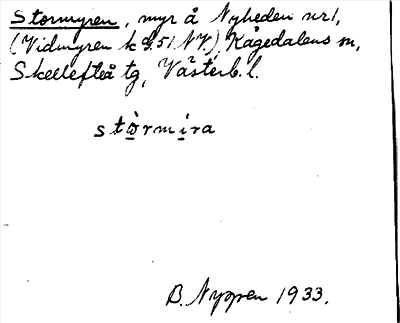 Stormyren, myr å Nyheden nr 1,
(Vidmyren k 9.51 NV.) Kågedalens sn,
Skellefteå tg, Västerb. l.
stò̱rmi̱ra
B. Nyppen 1933.